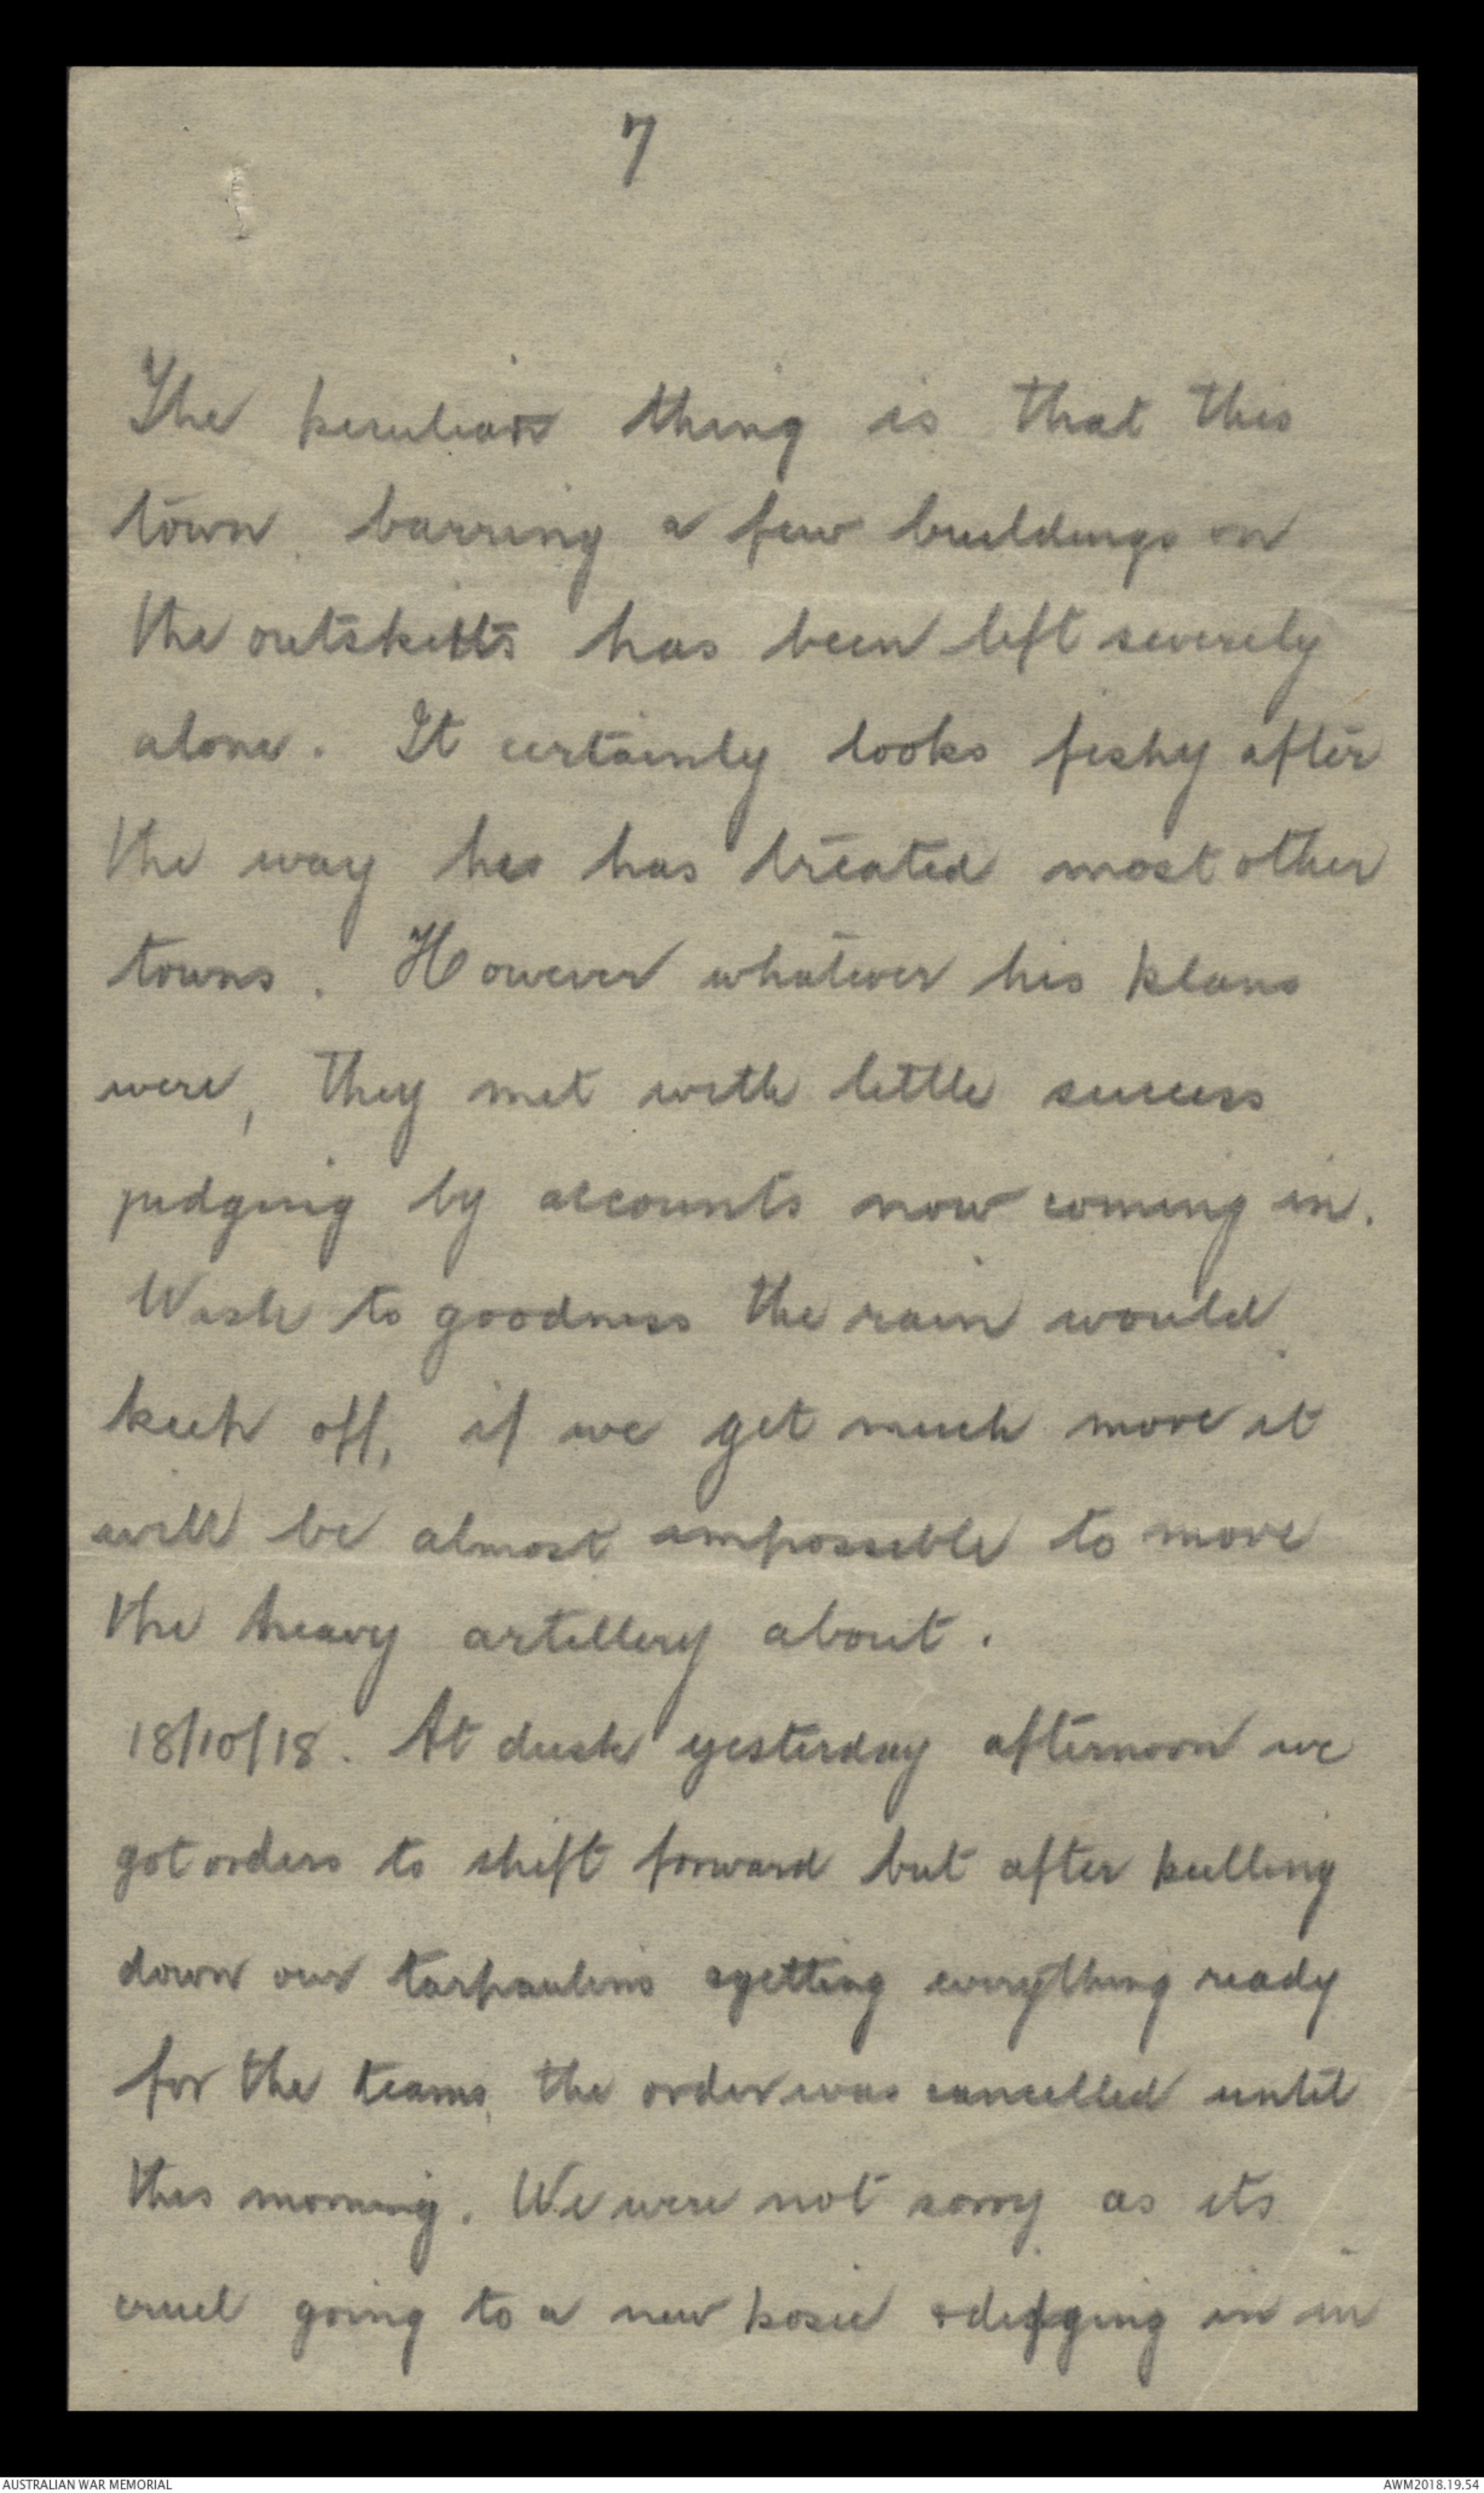 7
The peculiar thing is that this
town, barring a few buildings on
the outskirts has been left severely
alone. It certainly looks fishy after
the way he has treated most other
towns. However whatever his plans
were, they met with little success
judging by accounts now coming in.
Wish to goodness the rain would
keep off, if we get much more it
will be almost impossible to move
the heavy artillery about.
18/10/18. At dusk yesterday afternoon we
got orders to shift forward but after pulling
down our tarpaulins & getting everything ready
for the teams, the order was cancelled until
this morning. We were not sorry as its
cruel going to a new posie & digging in in
AUSTRALIAN WAR MEMORIAL
AWM2018.19.54